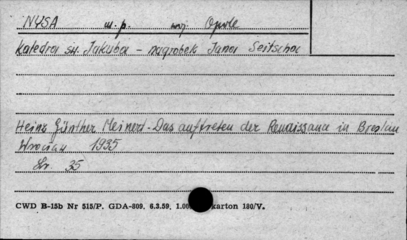 NYSA m.p. woj. Opole
Katedra św. Jakuba - nagrobek Jana Seitscha
Heinz Günther Meinert - Das auftreten der Renaissance in Breslau
Wrocław 1935
Str. 35
CWD B-15b Nr 515/P. GDA-809. 6.3.59. 1.00 karton 180/V.